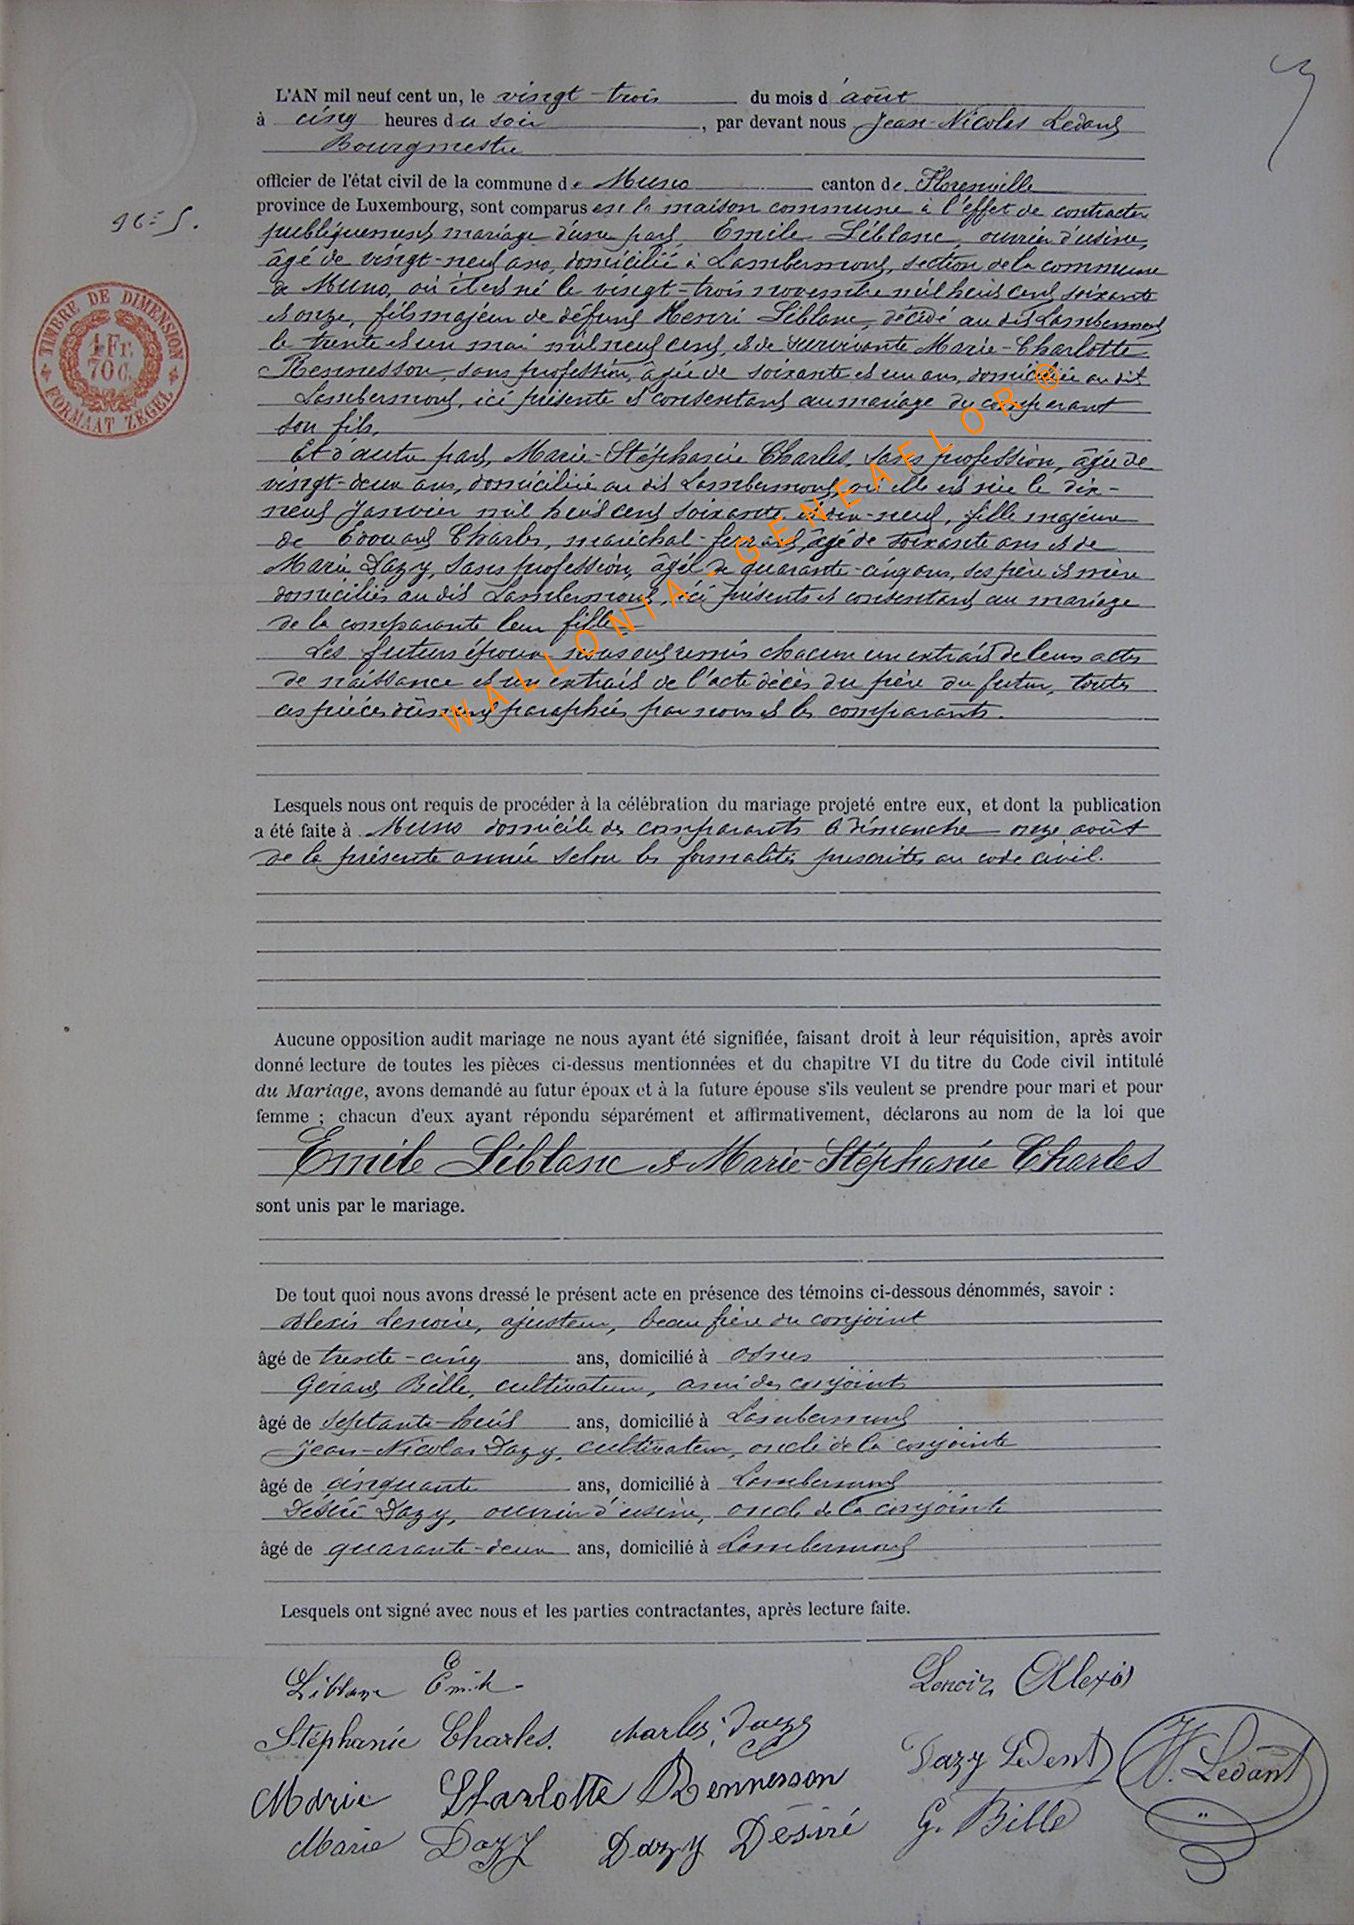 L'AN mil neuf cent un, le vingt-trois du mois d'août
à cinq heures du soir, par devant nous Jean-Nicolas Ledant
Bourgmestre
officier de l'état civil de la commune de Muno canton de Florenville
province de Luxembourg, sont comparus en la maison commune à l'effet de contracter
96-5.
publiquement mariage d'une part, Emile Léblanc, ouvrier d'usine,
âgé de vingt-neuf ans, domicilié à Lambermont, section de la commune
de Muno, où il est né le vingt-trois novembre mil huit cent soixante
et onze, fils majeur de défunt Henri Léblanc, décédé au dit Lambermont
le trente et un mai mil neuf cent, et de survivante Marie-Charlotte
Rennesson, sans profession, âgée de soixante et un ans, domiciliée au dit
Lambermont, ici présente et consentant au mariage du comparant
son fils.
Et d'autre part, Marie-Stéphanie Charles, sans profession, âgée de
vingt-deux ans, domiciliée au dit Lambermont, où elle est née le dix-
neuf Janvier mil huit cent soixante et dix-neuf, fille majeure
de Edouard Charles, maréchal-ferrant, âgé de soixante ans et de
Marie Dazy, sans profession, âgée de quarante-cinq ans, ses père et mère
domiciliés au dit Lambermont, ici présents et consentant au mariage
de la comparante leur fille.
Les futurs époux nous ont remis chacun un extrait de leurs actes
de naissance et un extrait de l'acte décès du père du futur, toutes
ces pièces dûment paraphées par nous et les comparants.
TIMBRE DE DIMENSION
1 Fr.
70 C.
FORMAAT ZEGEL
WALLONIA-GENEAFLOR ®
Lesquels nous ont requis de procéder à la célébration du mariage projeté entre eux, et dont la publication
a été faite à Muno domicile des comparants le dimanche onze août
de la présente année selon les formalités prescrites au code civil.
Aucune opposition audit mariage ne nous ayant été signifiée, faisant droit à leur réquisition, après avoir
donné lecture de toutes les pièces ci-dessus mentionnées et du chapitre VI du titre du Code civil intitulé
du Mariage, avons demandé au futur époux et à la future épouse s'ils veulent se prendre pour mari et pour
femme ; chacun d'eux ayant répondu séparément et affirmativement, déclarons au nom de la loi que
Emile Léblanc et Marie-Stéphanie Charles
sont unis par le mariage.
De tout quoi nous avons dressé le présent acte en présence des témoins ci-dessous dénommés, savoir :
Alexis Lenoir, ajusteur, beau frère du conjoint
âgé de trente-cinq ans, domicilié à Osnes
Gérard Bille, cultivateur, ami des conjoints
âgé de septante-huit ans, domicilié à Lambermont
Jean-Nicolas Dazy, cultivateur, oncle de la conjointe
âgé de cinquante ans, domicilié à Lambermont
Désiré Dazy, ouvrier d'usine, oncle de la conjointe
âgé de quarante-deux ans, domicilié à Lambermont
Lesquels ont signé avec nous et les parties contractantes, après lecture faite.
Léblanc Emile Lenoir Alexis
Stéphanie Charles. Charles, Dazy
Dazy Ledent
Marie Charlotte Rennesson
Ledant
Marie Dazy Dazy Désiré G. Bille